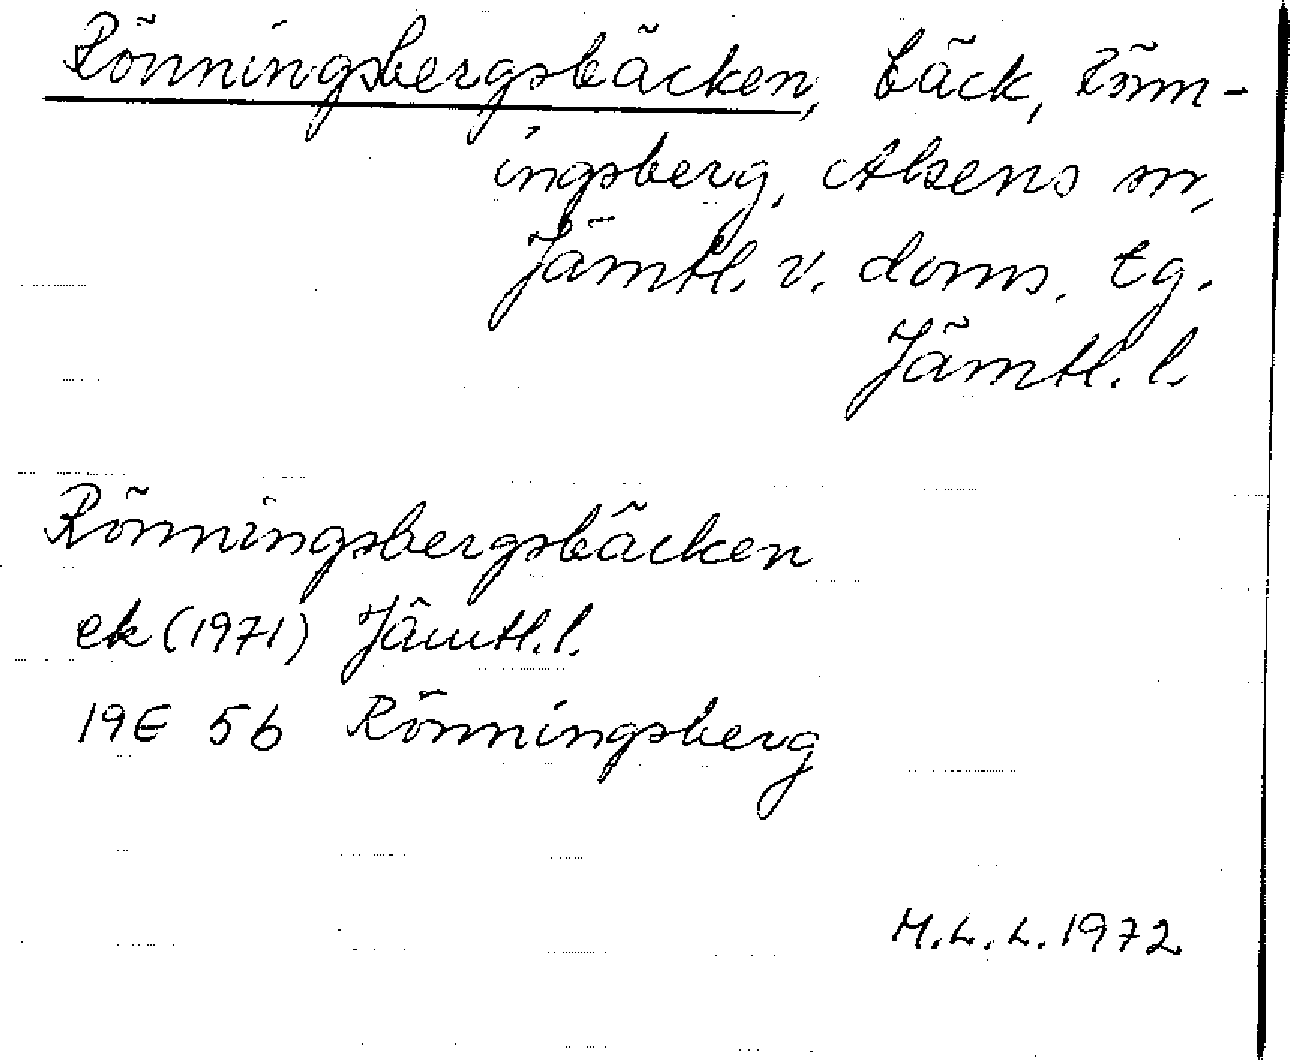 Rönningsbergsbäcken, bäck, Rönn-
ingsberg, Alsens sn,
Jämtl. v. doms. tg.
Jämtl. l.
Rönningsbergsbäcken
ek (1971) Jämtl. l.
19E 5b Rönningsberg
M.L.L. 1972